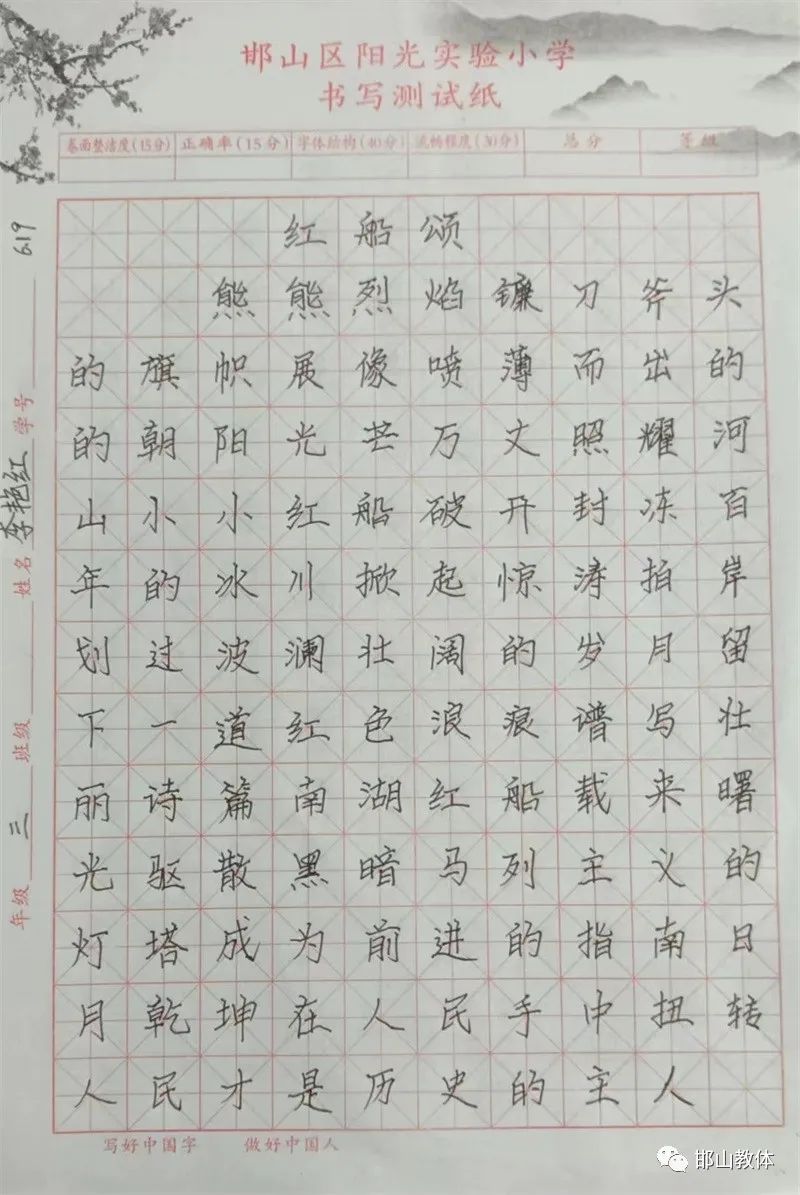 邯山区阳光实验小学
书写测试纸
卷面整洁度(15分) 正确率(15分) 字体结构(40分) 流畅程度(30分) 总分 等级
红船颂
熊熊烈焰镰刀斧头
的旗帜展像喷薄而出的
的朝阳光芒万丈照耀河
山小小红船破开封冻百
年的冰川掀起惊涛拍岸
划过波澜壮阔的岁月留
下一道红色浪痕谱写壮
丽诗篇南湖红船载来曙
光驱散黑暗马列主义的
灯塔成为前进的指南日
月乾坤在人民手中扭转
人民才是历史的主人
年级 三 班级 姓名 李艳红 学号 619
写好中国字 做好中国人
邯山教体